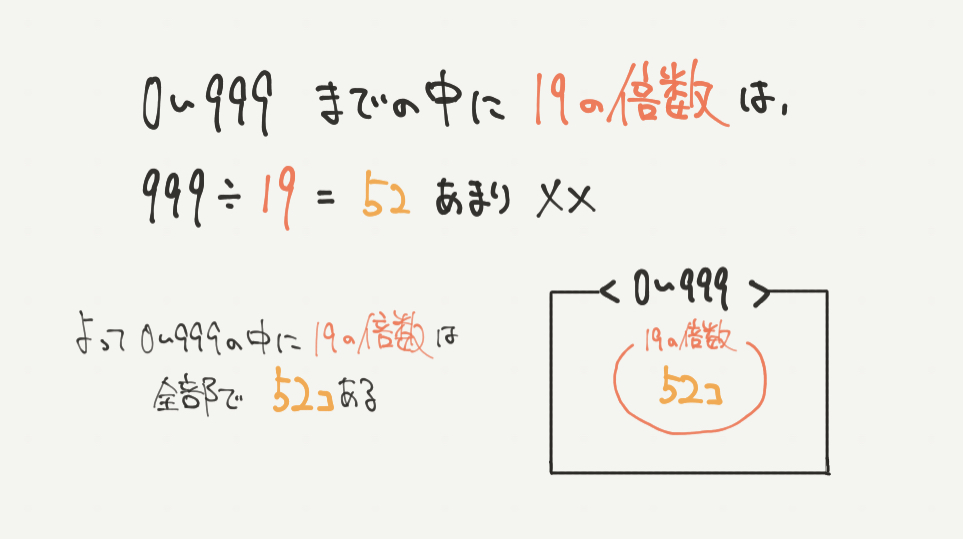 0〜999 までの中に 19の倍数 は,
999÷19 = 52 あまり ××
よって 0〜999の中に 19の倍数 は
全部で 52コ ある
< 0〜999 >
19の倍数
52コ